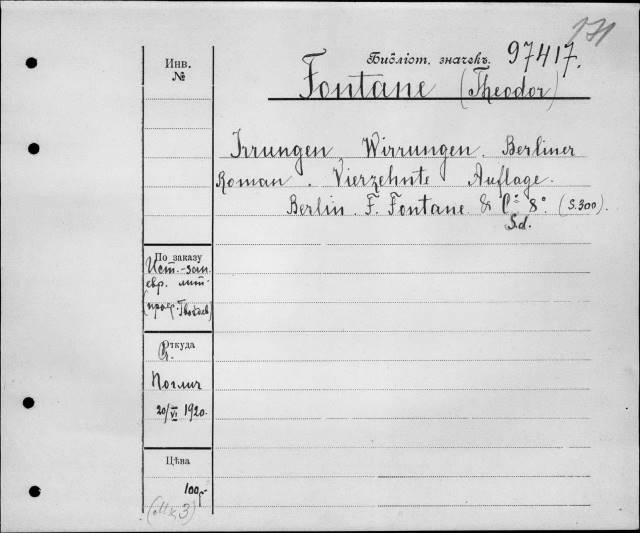 171
Инв.
№
Библіот. значекъ. 97417.
Fontane (Theodor)
Irrungen Wirrungen. Berliner
Roman. Vierzehnte Auflage.
Berlin. F. Fontane & C° 8°. (S.300).
S.d.
По заказу
Ист.-зап.
евр. лит.
(проф.
Откуда
20/VI 1920.
Цѣна
100р